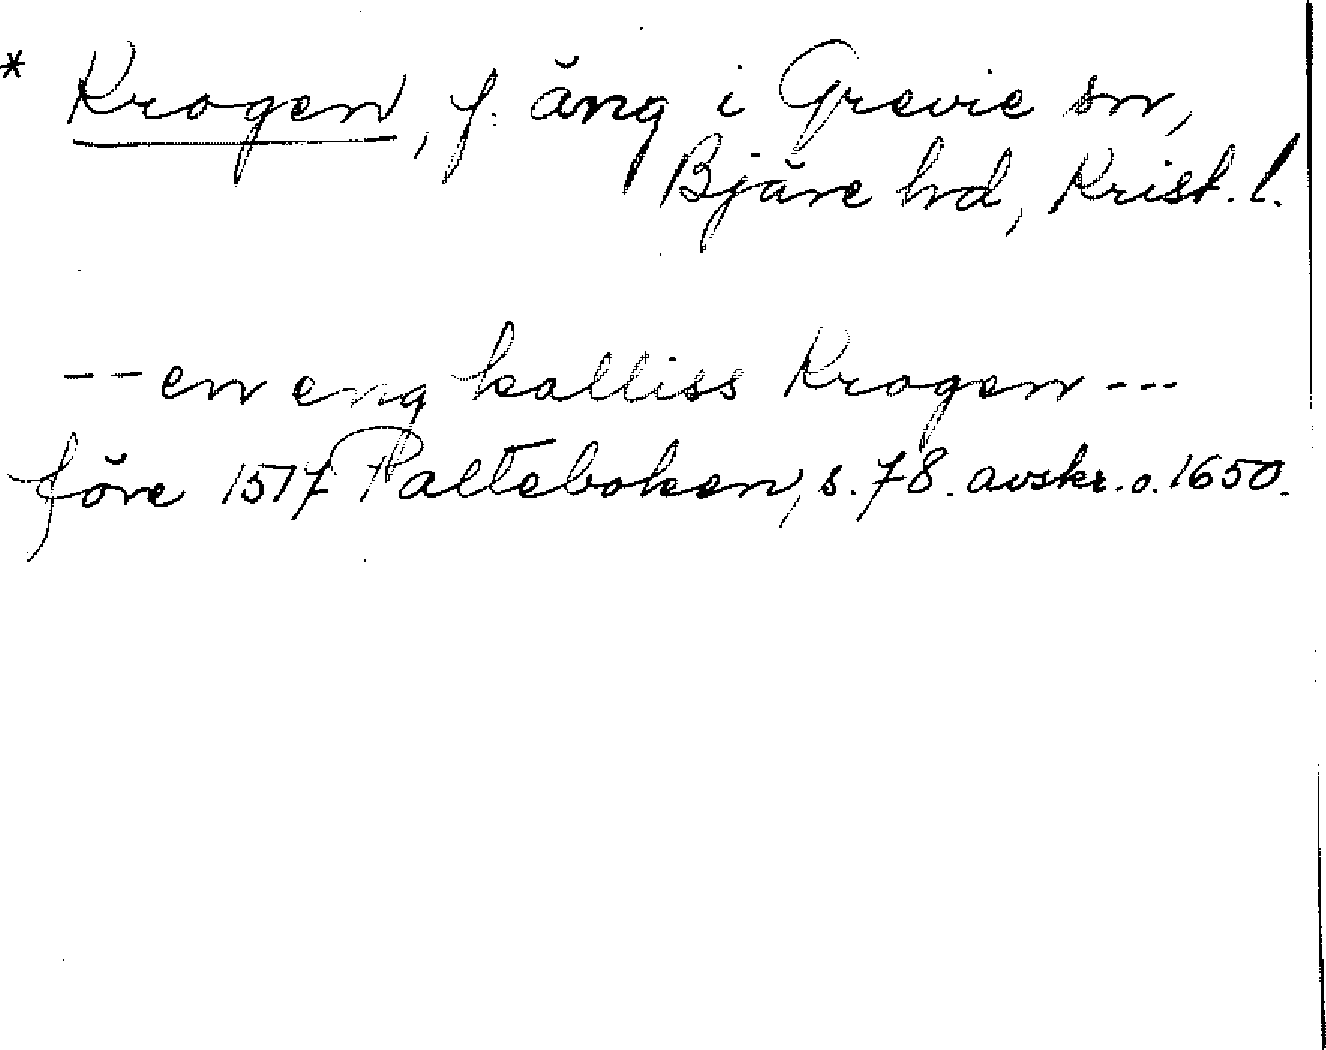 * Krogen, f. äng i Grevie sn,
Bjäre hd, Krist. l.
-- en eng kalliss Krogen ---
före 1517 Palteboken, s. 78. avskr. o. 1650.